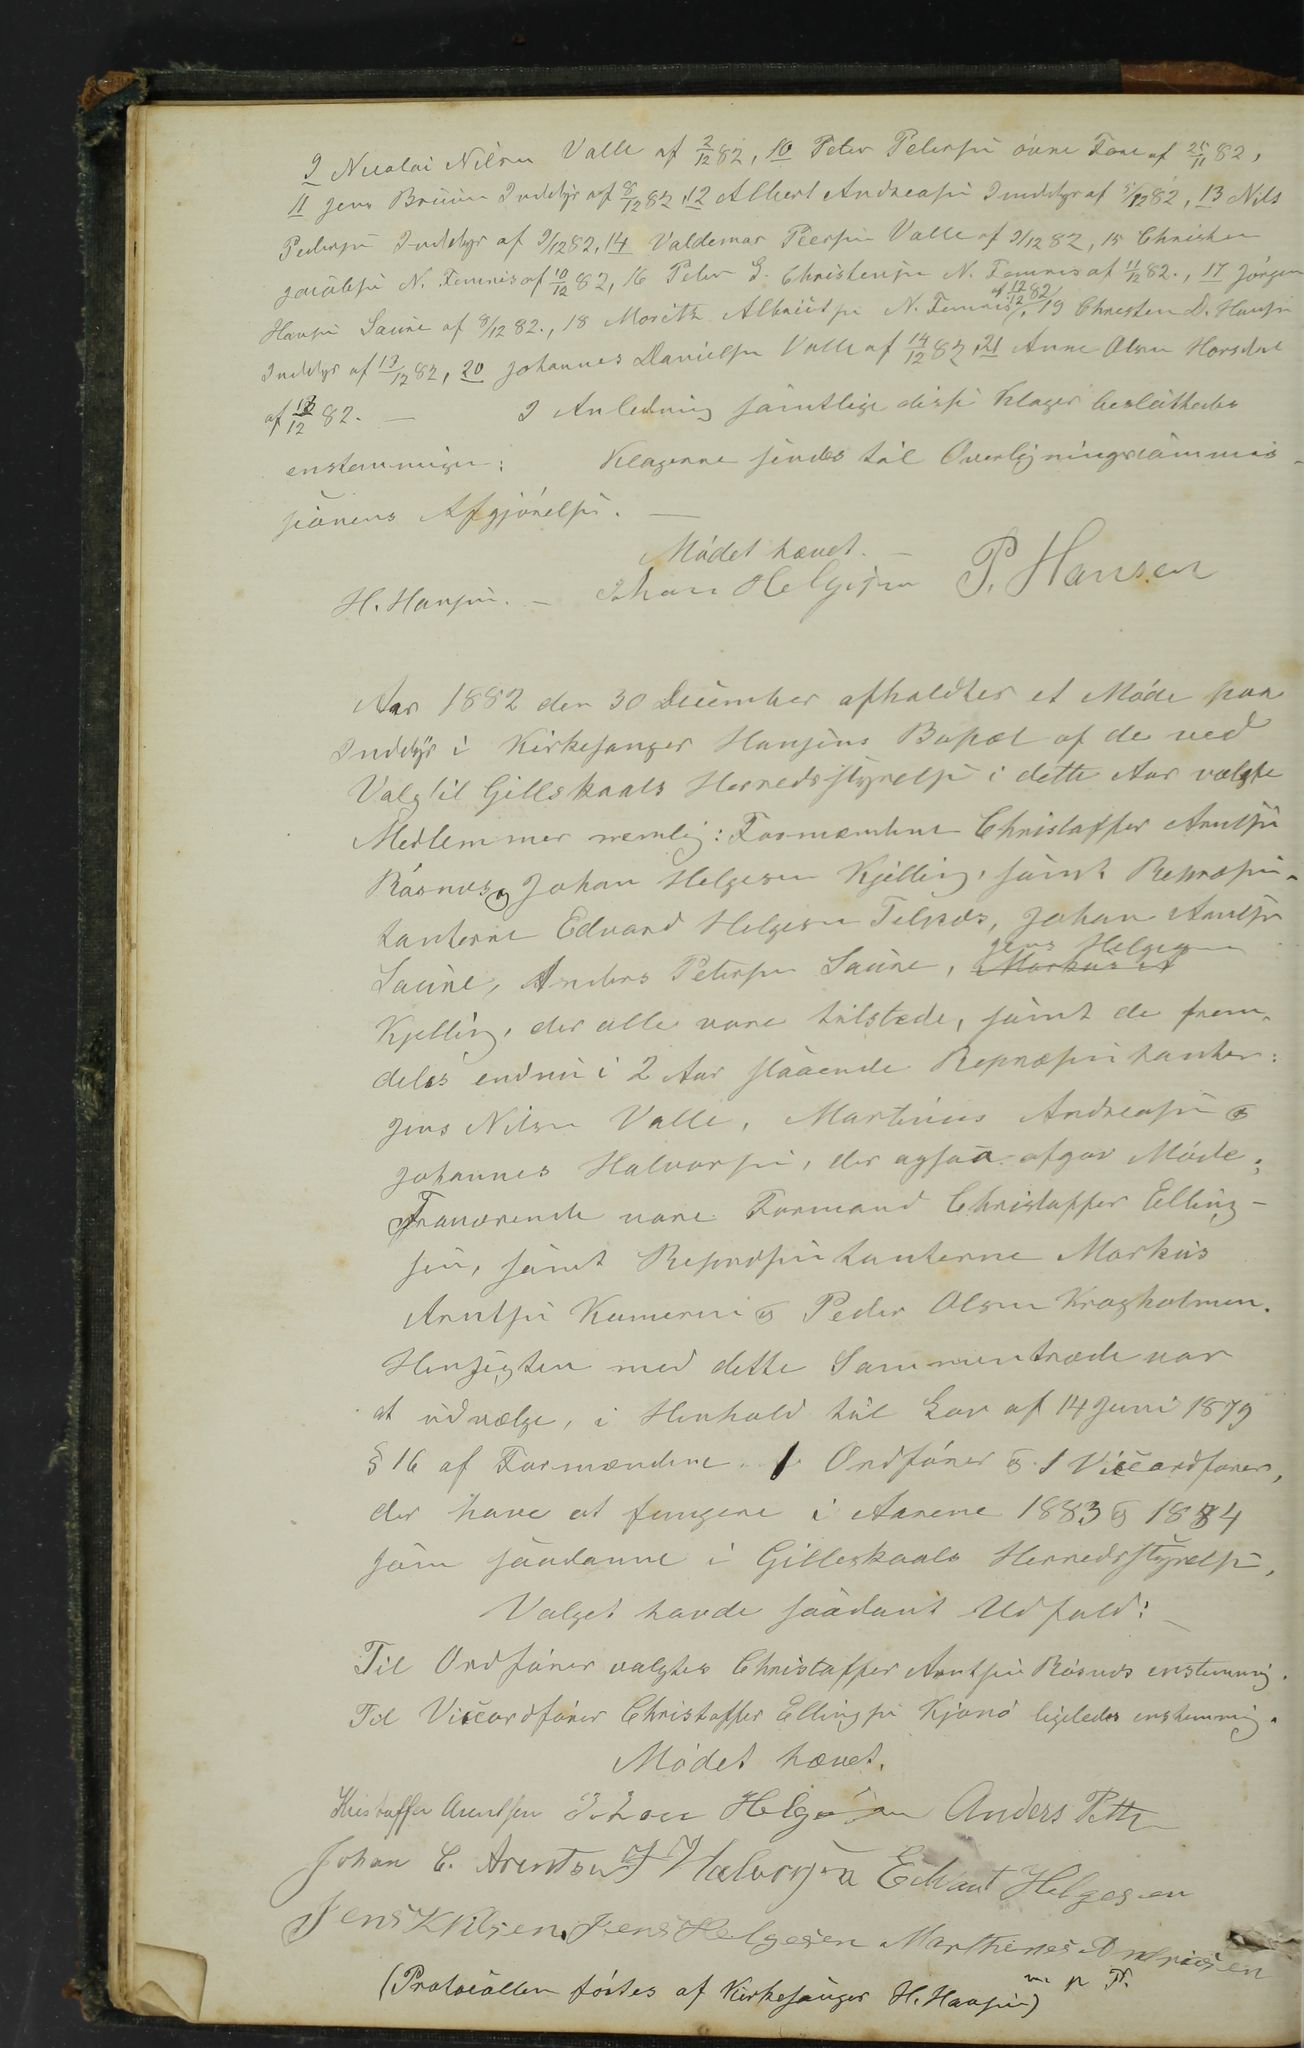 9 Nicolai Nilsen Valle af 2/12 82, 10 Peter Petersen övre Fore af 25/11 82,
11 Jens Bruun Inddyr af 8/12 82, 12 Albert Andreasen Inddyr af 5/12 82, 13 Nils
Pedersen Inddyr af 9/12 82, 14 Valdemar Peersen Valle af 9/12 82, 15 Christen
Jacobsen N. Femris af 10/12 82, 16 Peter G. Christensen N. Femris af 11/12 82., 17 Jörgen
Hansen Saure af 8/12 82., 18 Moritz Albrietsen N. Femris af 12/12 82, 19 Christen D. Hansen
Inddyr af 13/12 82, 20 Johannes Danielsen Valle af 14/12 82, 21 Anne Olsen Horsdal
af 13/12 82. — I Anledning samtlige disse Klager besluttedes
enstemmigen: Klagerne sendes til Overligningscommis-
sionens Afgjörelse. —
Mödet hævet. —
H. Hansen. — Johan Helgesen P. Hansen
Aar 1882 den 30 December afholdtes et Möde paa
Inddyr i Kirkesanger Hansens Bopæl af de ved
Valg til Gilleskaals Herredsstyrelse i dette Aar valgte
Medlemmer nemlig: Formændene Christoffer Arntsen
Rösnes og Johan Helgesen Kjelling, samt Repræsen-
tanterne Edvard Helgesen Telnes, Johan Arntsen
Saure, Anders Petersen Saure, Markus A Jens Helgesen
Kjelling, der alle vare tilstede, samt de frem-
deles endnu i 2 Aar staaende Repræsentanter:
Jens Nilsen Valle, Martinus Andreasen og
Johannes Halvorsen, der ogsaa afgav Möde;
Fraværende vare Formand Christoffer Elling-
sen, samt Repræsentanterne Markus
Arntsen Kameren og Peder Olsen Kragholmen.
Hensigten med dette Sammentræde var
at udvælge, i Henhold til Lov af 14 Juni 1879
§ 16 af Formændene 1 Ordförer og 1 Viceordförer,
der have at fungere i Aarene 1883 og 1884
som saadanne i Gilleskaals Herredsstyrelse,
Valget havde saadant Udfald: —
Til Ordförer valgtes Christoffer Arntsen Rösnes enstemmig.
Til Viceordförer Christoffer Ellingsen Kjönö ligeledes enstemmig.
Mödet hævet.
Kristoffer Arentsen Johan Helgesen Anders Petter
Johan C. Arentsen J Halvorsen Edvart Helgesen
Jens K Nilsen. Jens Helgesen Marthenes Andreasen
m p F.
(Protocollen förtes af Kirkesanger H. Hansen)